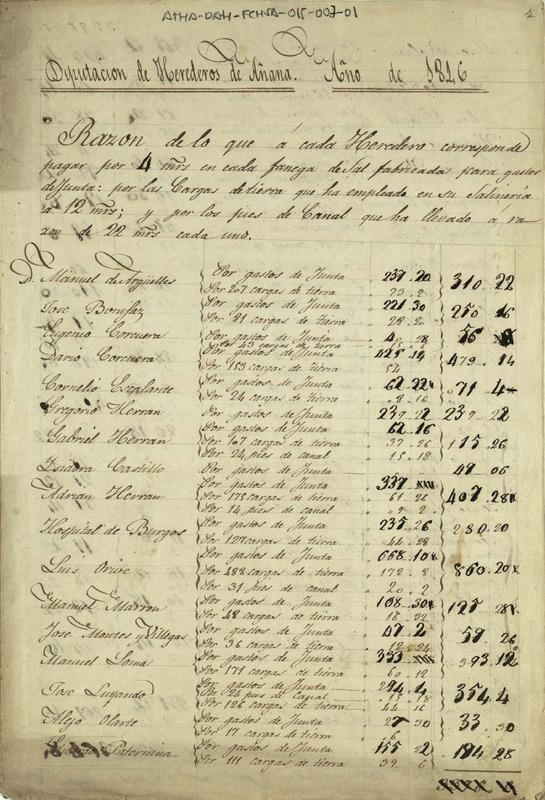 ATHA-DAH-FCHSA-015-007-01
1
Diputacion de Herederos de Añana. Año de 1846
Razon de lo que á cada Heredero corresponde
pagar por 4 mrs en cada fanega de Sal fabricada para gastos
de Junta: por las Cargas de tierra que ha empleado en su Salineria
á 12 mrs; y por los pies de Canal que ha llevado a ra
zon de 22 mrs cada uno.
D. Manuel de Argüelles Por gastos de Junta 237.20 310 22
Por 207 cargas de tierra 73.2
Jose Bonifaz Por gastos de Junta 221.30 250 16
Por 81 cargas de tierra 28.20
Eugenio Corcuera Por gastos de Junta 56
Por 43 cargas de tierra
Dario Corcuera Por gastos de Junta 425.14 479.14
Por 153 cargas de tierra 54
Cornelio Escalante Por gastos de Junta 62.22 71 4
Por 24 cargas de tierra 8.16
Gregorio Herran Por gastos de Junta 239.22 239.22
Gabriel Herran 62.16 115.26
Por 107 cargas de tierra 37.26
Por 24 pies de canal 15.18
Isidra Castillo Por gastos de Junta 06
Adrian Herran Por gastos de Junta 337 407 28
Por 175 cargas de tierra 61 26
Por 14 pies de canal 9.2
Hospital de Burgos Por gastos de Junta 235.26 280.20
Por 127 cargas de tierra 44.28
Luis Orive Por gastos de Junta 668.10 860.20
Por 488 cargas de tierra 172.8
Por 31 pies de canal 20.2
Manuel Marron Por gastos de Junta 108.30 125 28
Por 48 cargas de tierra 16.32
Jose Montes y Villegas Por gastos de Junta 47 2 59 26
Por 36 cargas de tierra 12.24
Manuel Loma Por gastos de Junta 333 393 12
Por 171 cargas de tierra 60.12
Jose Luyando Por gastos de Junta 294 4 354 4
Por pies de Canal 18
Por 126 cargas de tierra 44 16
Alejo Olarte Por gastos de Junta 27 30 33 30
Por 17 cargas de tierra 6
Paternina Por gastos de Junta 155 22 194 28
Por 111 cargas de tierra 39 6